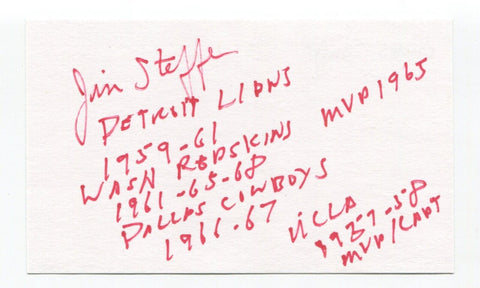 Jim Steffe
DETROIT LIONS
1959-61
WASH REDSKINS MVP 1965
1961-65-68
DALLAS COWBOYS
1966-67
UCLA
1957-58
MVP/CAPT